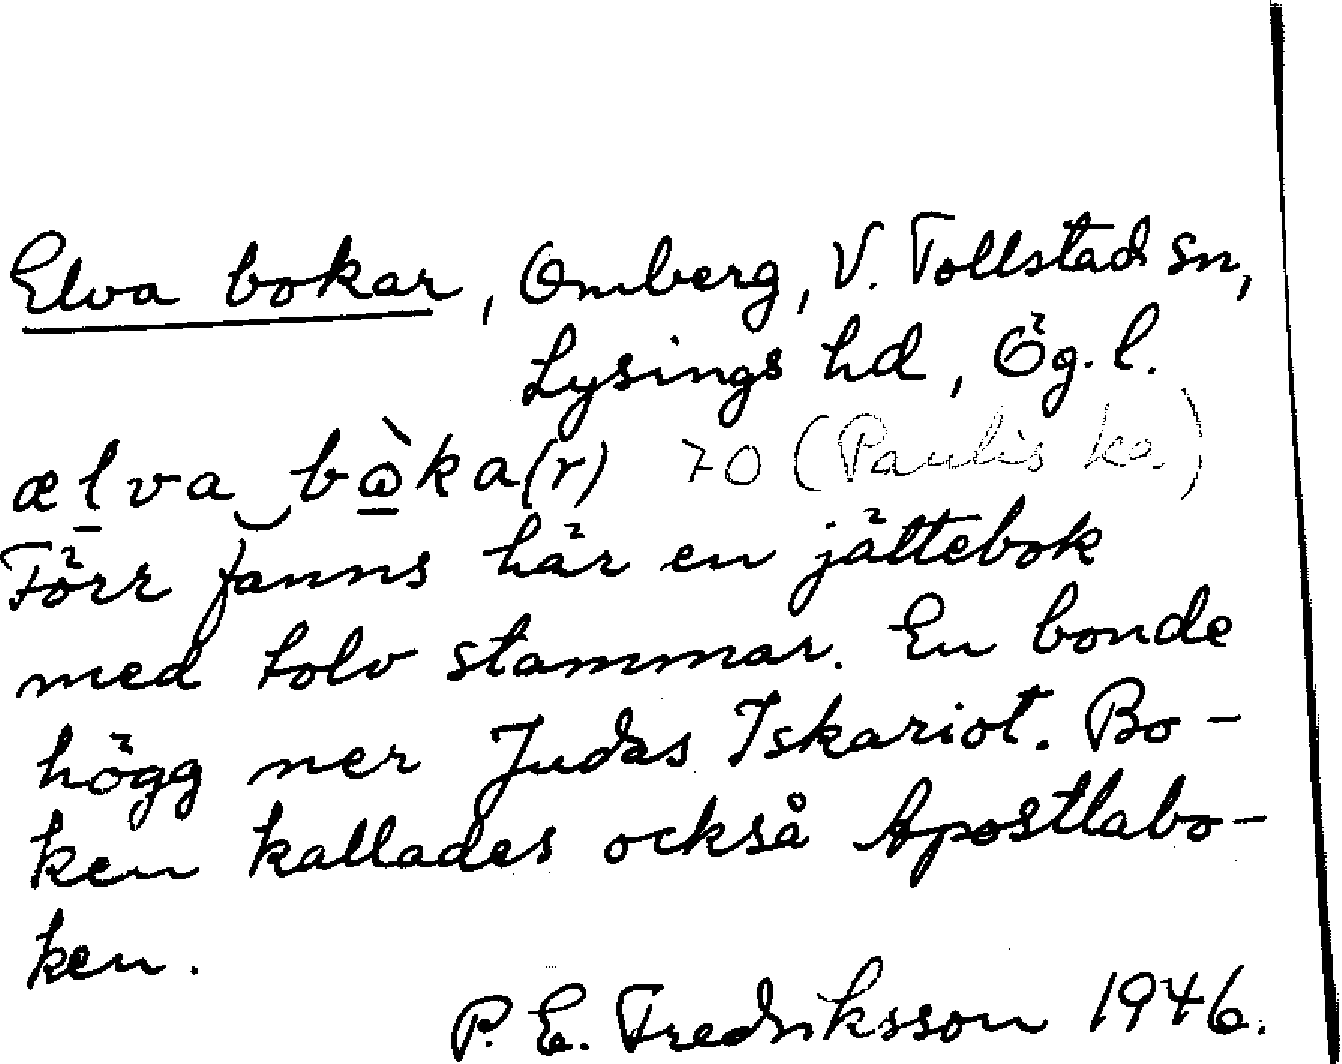 Elva bokar, Omberg, V. Tollstad sn,
Lysings hd, Ög. l.
ælva bὼka(r) 70 (Paulis ka.)
Förr fanns här en jättebok
med tolv stammar. En bonde
högg ner Judas Iskariot. Bo-
ken kallades också Apostlabo-
ken.
P. E. Fredriksson 1946.